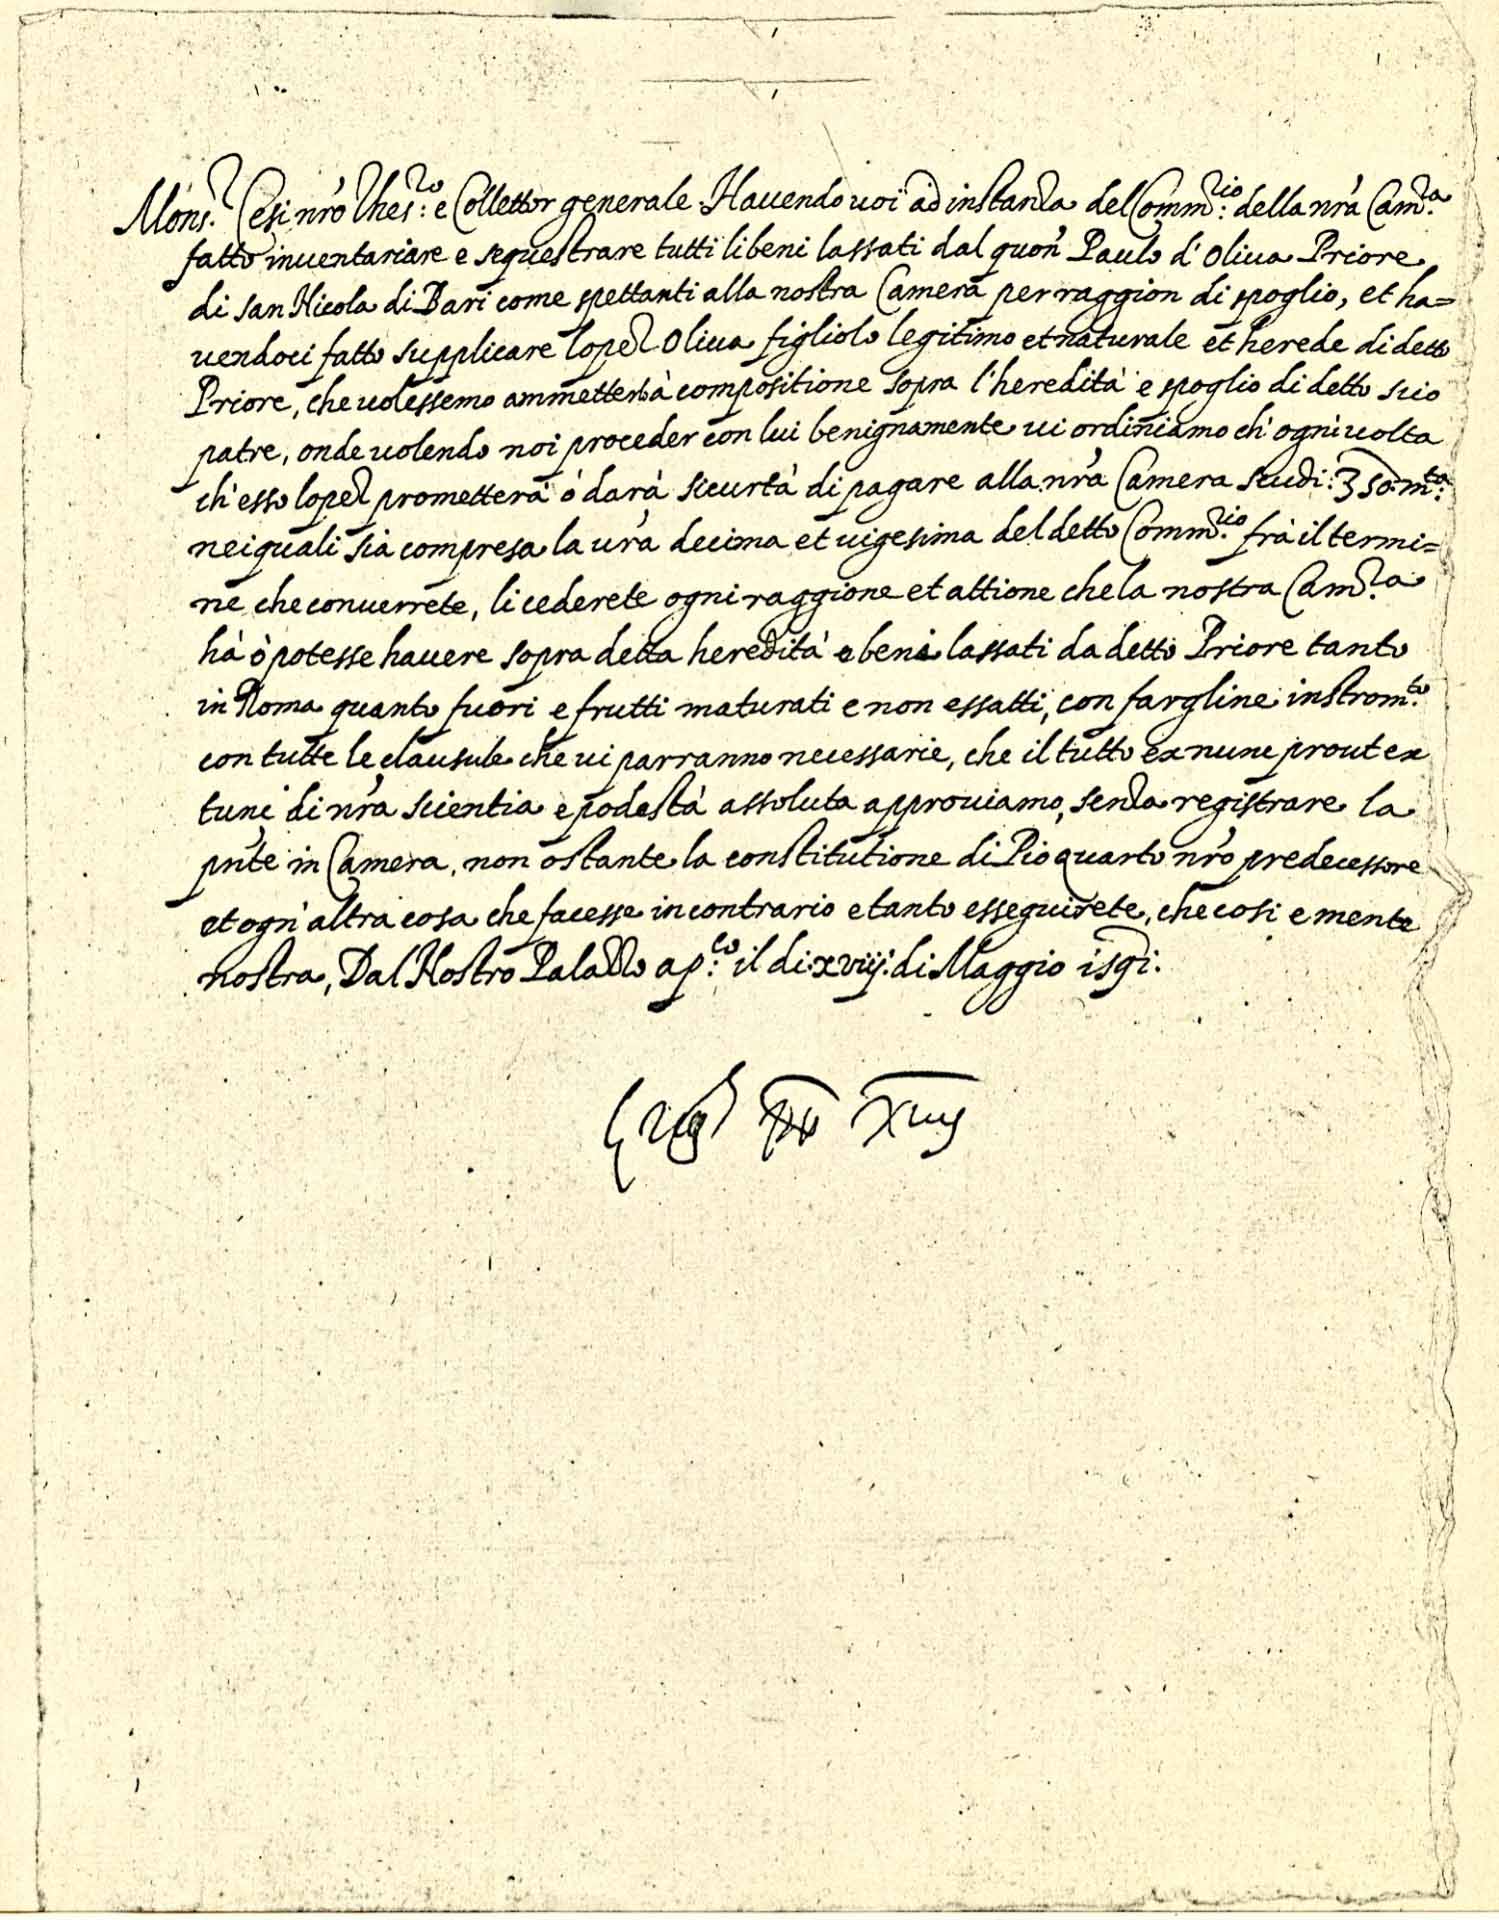 Mons.r Cesi nr̃o Thes.ro: e Collettor generale. Hauendo uoi ad instanza del Comm.rio: della nr̃a Cam.ra
fatto inuentariare e sequestrare tutti li beni lassati dal quon̄ Paulo d'Oliua Priore
di san Nicola di Bari come spettanti alla nostra Camera per raggion di spoglio, et ha=
uendoci fatto supplicare lopez Oliua figliolo legitimo et naturale et herede di detto
Priore, che uolessemo ammetterlo à compositione sopra l'heredità e spoglio di detto suo
patre, onde uolendo noi proceder con lui benignamente ui ordiniamo ch'ogni uolta
ch'esso lopez prometterà ò darà sicurtà di pagare alla nr̃a Camera scudi: 350. m.ta:
nei quali sia compresa la ur̃a decima et uigesima del detto Comm.rio: frà il termi=
ne che conuerrete, li cederete ogni raggione et attione che la nostra Cam.ra
hà ò potesse hauere sopra detta heredità e beni lassati da detto Priore tanto
in Roma quanto fuori e frutti maturati e non essatti, con fargline instrom.to
con tutte le clausule che ui parranno necessarie, che il tutto ex nunc prout ex
tunc di nr̃a scientia e podestà assoluta approuiamo, senza registrare la
pn̄te in Camera, non ostante la constitutione di Pio quarto nr̃o predecessore
et ogn'altra cosa che facesse in contrario e tanto esseguirete, che cosi e mente
nostra, Dal Nostro Palazzo ap.co: il di: xviij: di Maggio 1591.
Greg PP XIIIJ